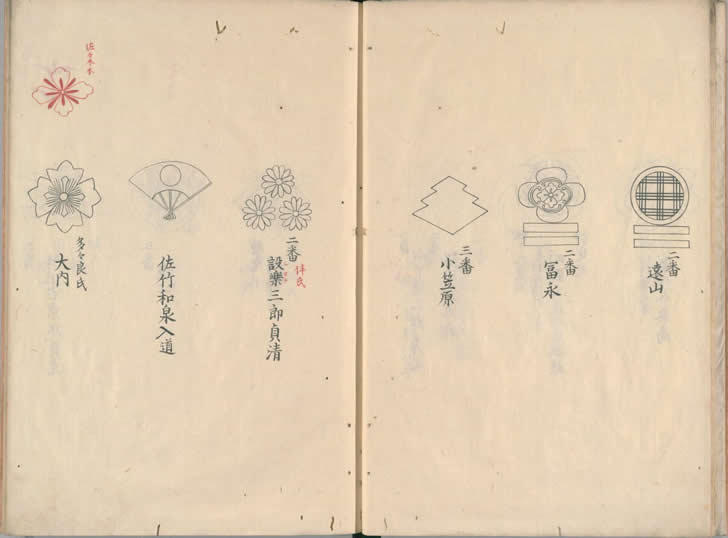 二番
遠山
二番
冨永
三番
小笠原
二番
伴氏
設樂三郎貞清
佐竹和泉入道
多々良氏
大内
佐々木